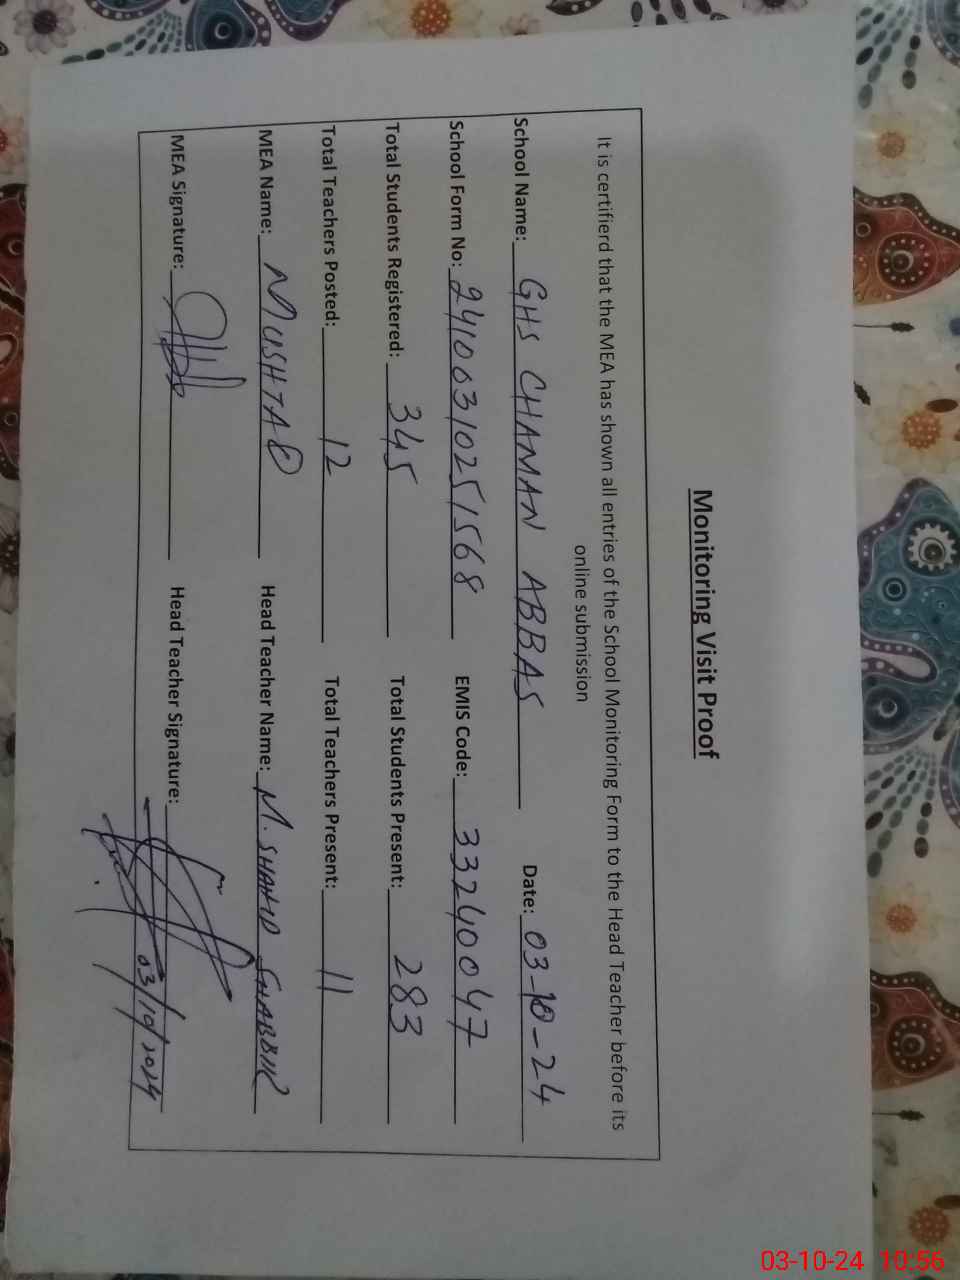 Monitoring Visit Proof
It is certifierd that the MEA has shown all entries of the School Monitoring Form to the Head Teacher before its
online submission
School Name: GHS CHAMAN ABBAS Date: 03-10-24
School Form No: 24100310251568 EMIS Code: 33240047
Total Students Registered: 345 Total Students Present: 283
Total Teachers Posted: 12 Total Teachers Present: 11
MEA Name: MUSHTAQ Head Teacher Name: M. SHAHID SHABBIR
MEA Signature: Head Teacher Signature:
03/10/2024
03-10-24 10:56